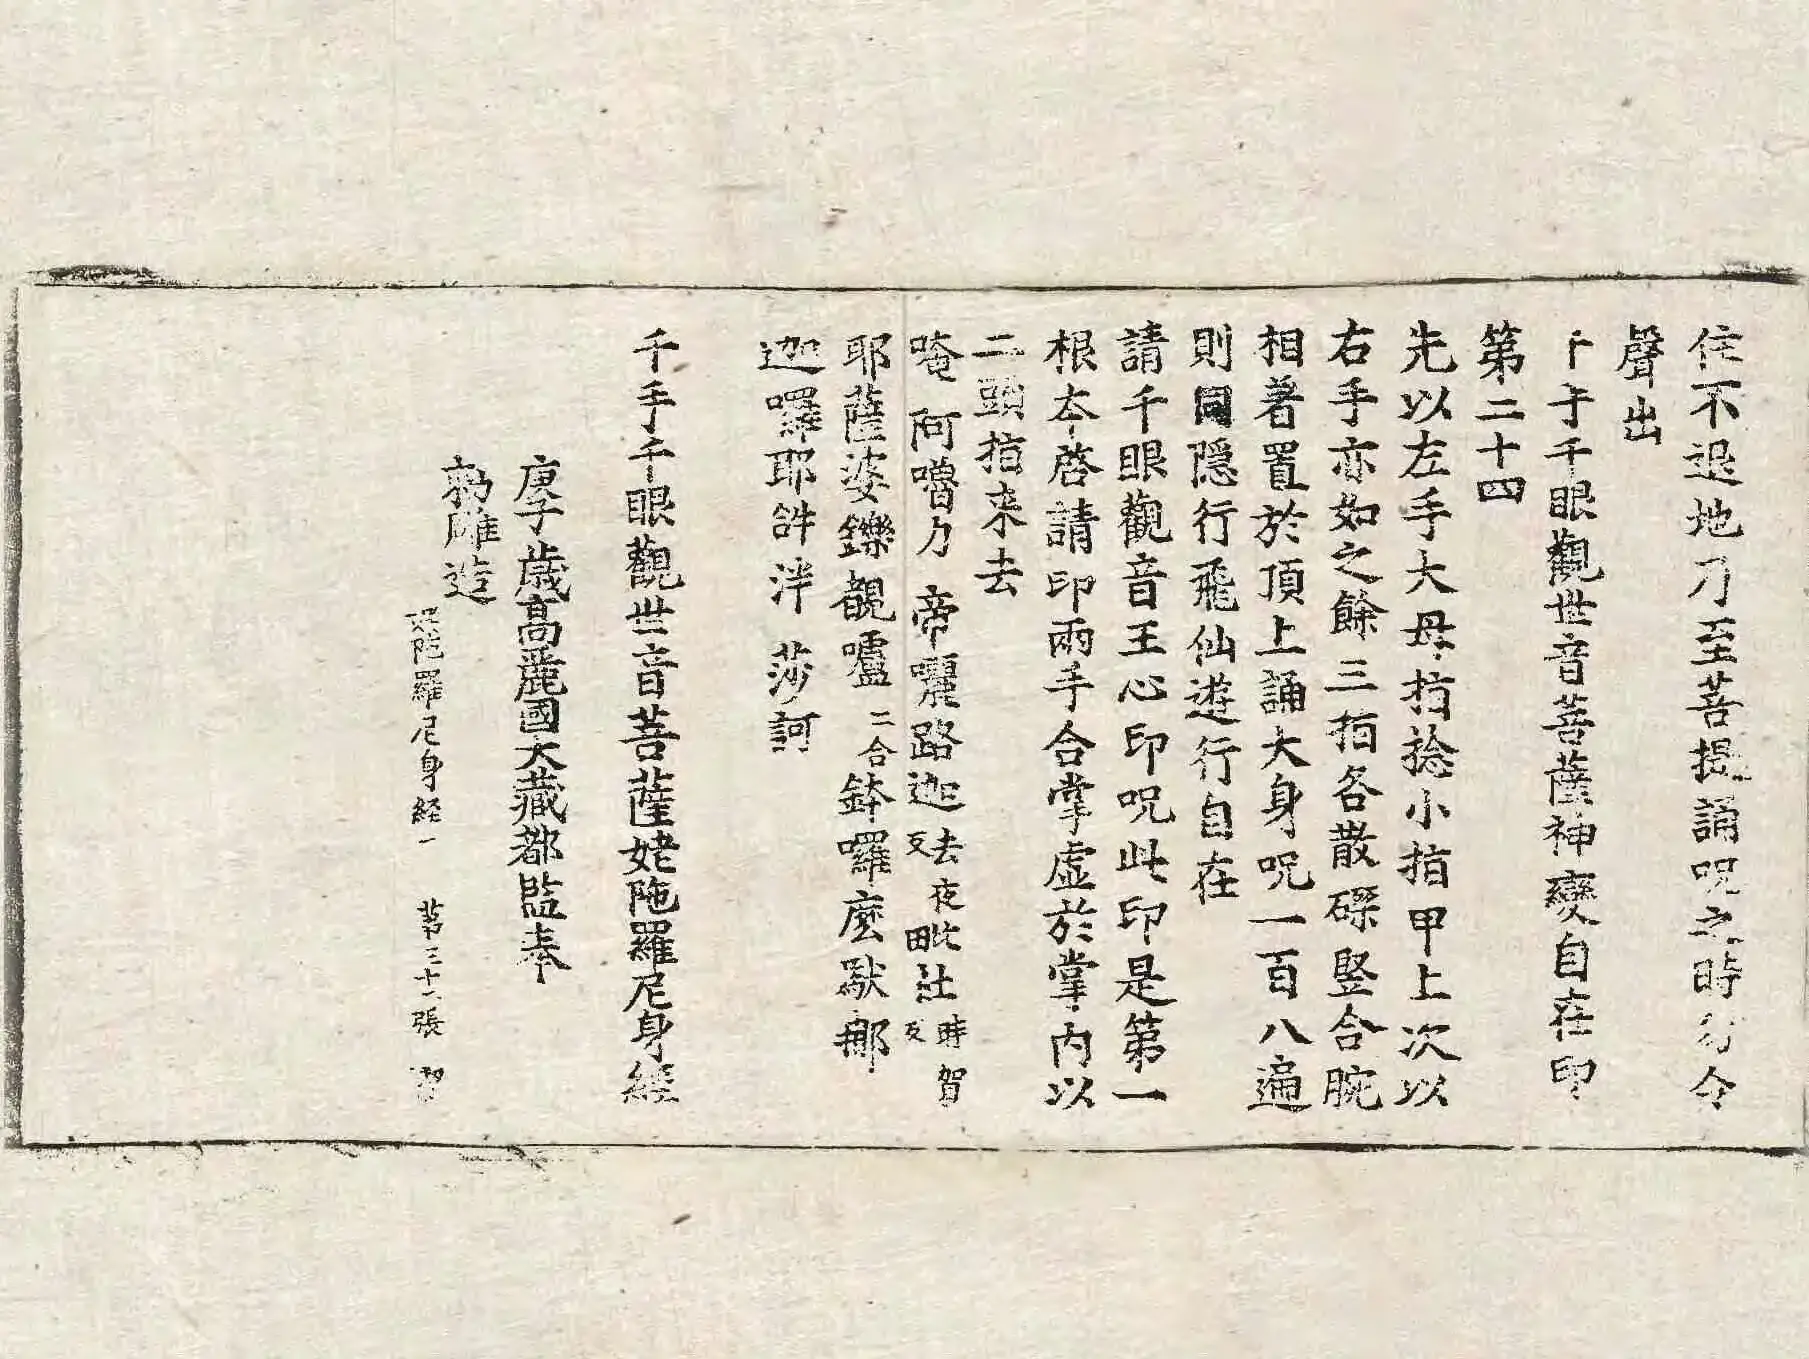 住不退地乃至菩提誦呪之時勿令
聲出
千手千眼觀世音菩薩神變自在印
第二十四
先以左手大母指捻小指甲上次以
右手亦如之餘三指各散磔竪合腕
相著置於頂上誦大身呪一百八遍
則同隱行飛仙遊行自在
請千眼觀音王心印呪此印是第一
根本啓請印兩手合掌虛於掌內以
二頭指来去
唵 阿嚕力 帝囇路迦去夜反毗社時賀反
耶薩婆鑠覩嚧二合鉢囉麼馱那
迦囉耶𤙖泮 莎訶
千手千眼觀世音菩薩姥陁羅尼身經
庚子歲高麗國大藏都監奉
勑雕造
姥陁羅尼身經一 第三十一張